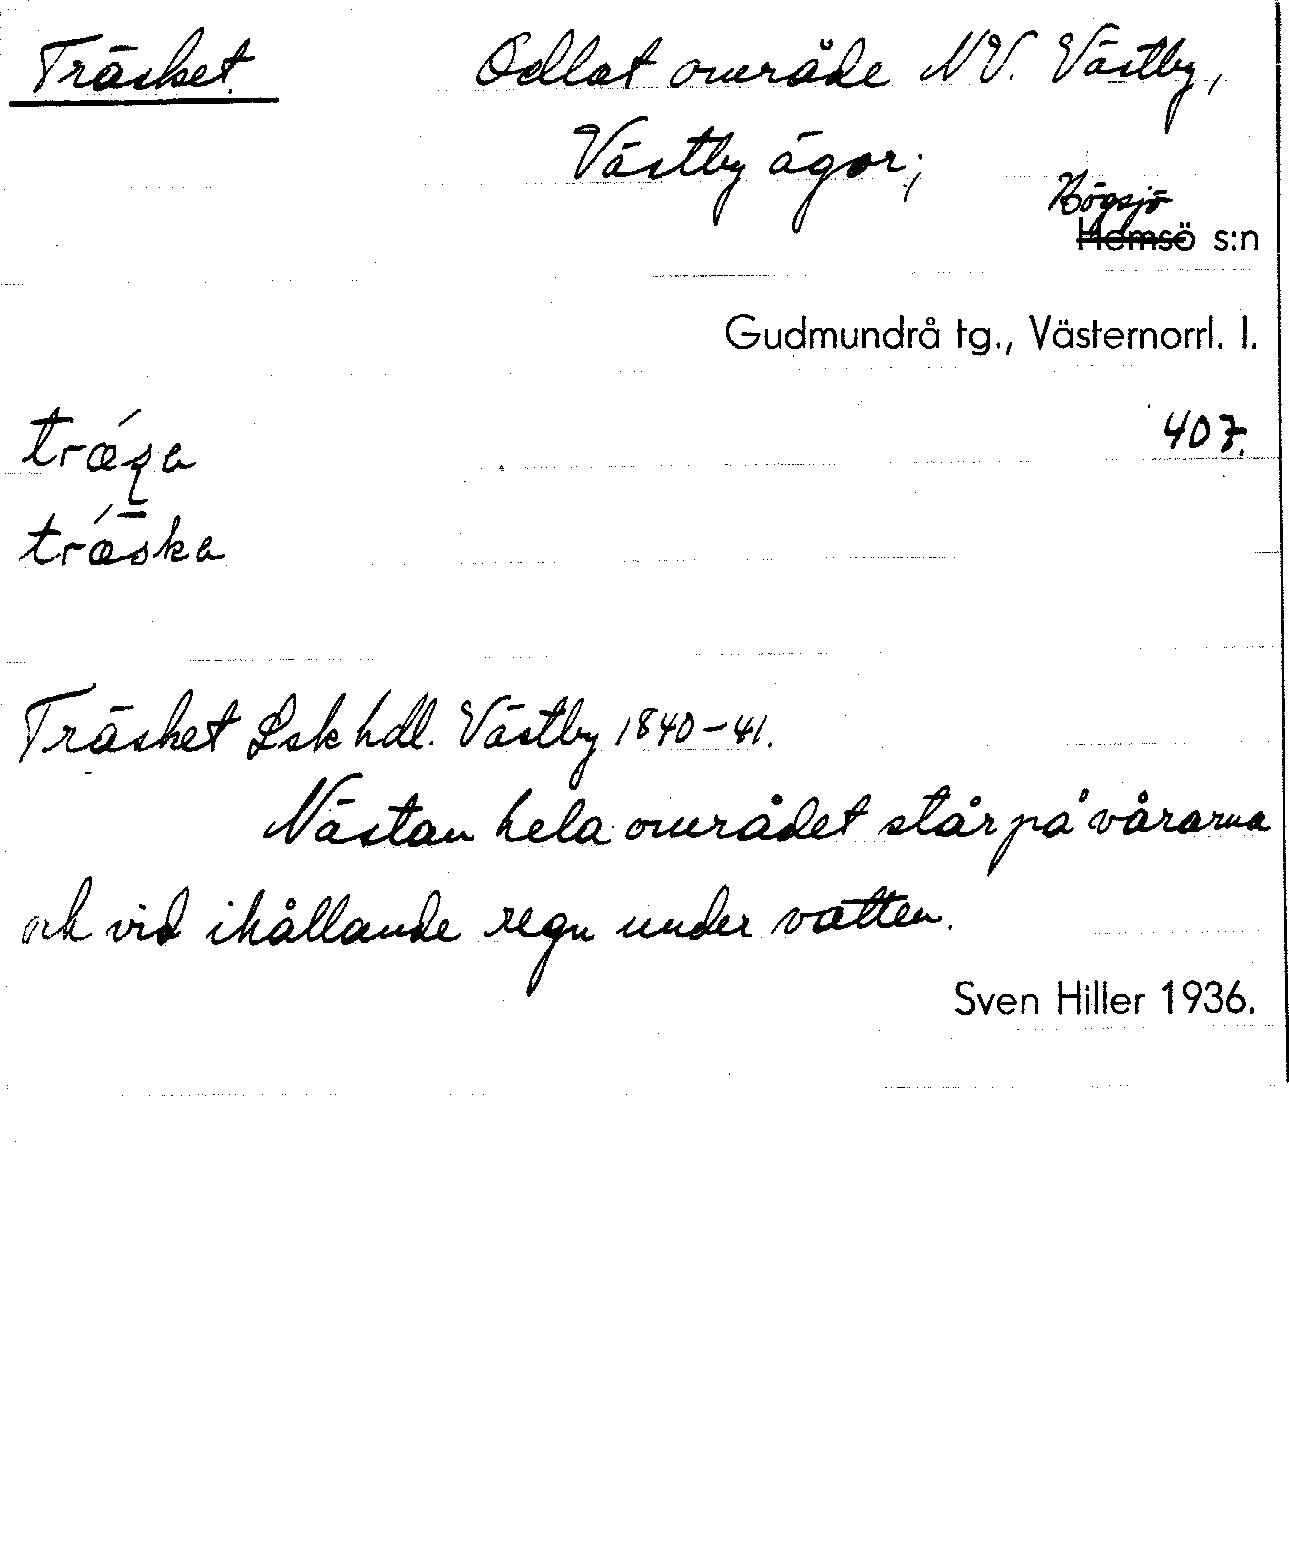 Träsket. Odlat område NV. Västby,
Västby ägor;
Högsjö
Hemsö s:n
Gudmundrå tg., Västernorrl. l.
407.
träska
Träsket Lsk hdl. Västby 1840-41.
Nästan hela området står på vårarna
och vid ihållande regn under vatten.
Sven Hiller 1936.